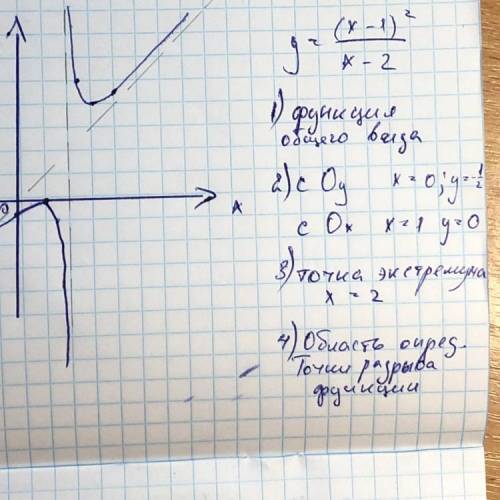 y = (x-1)² / x-2
1) функция
общего вида
2) с Oy x=0; y=-1/2
с Ox x=1 y=0
3) точка экстремума
x = 2
4) Область опред.
Точки разрыва
функции
0
x